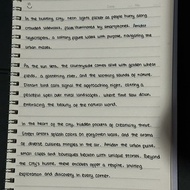 In the bustling city, neon lights flicker as people hurry along
crowded sidewalks, faces illuminated by smartphones. Amidst
skyscrapers, a solitary figure walks with purpose, navigating the
urban maze.
As the sun sets, the countryside comes alive with golden wheat
fields, a gardening man, and the soothing sounds of nature.
Distant bird songs signal the approaching night, casting a
peaceful spell over wild landscapes, where time slows down,
embracing the beauty of the natural world.
In the heart of the city, hidden pockets of creativity thrive.
Street artists splash colors on forgotten walls, and the aroma
of diverse cuisines mingles in the air. Amidst the urban pulse,
minor clubs and boutiques beckon with unique stories. Beyond
the city's hustle, these enclaves offer a respite, inviting
exploration and discovery in every corner.